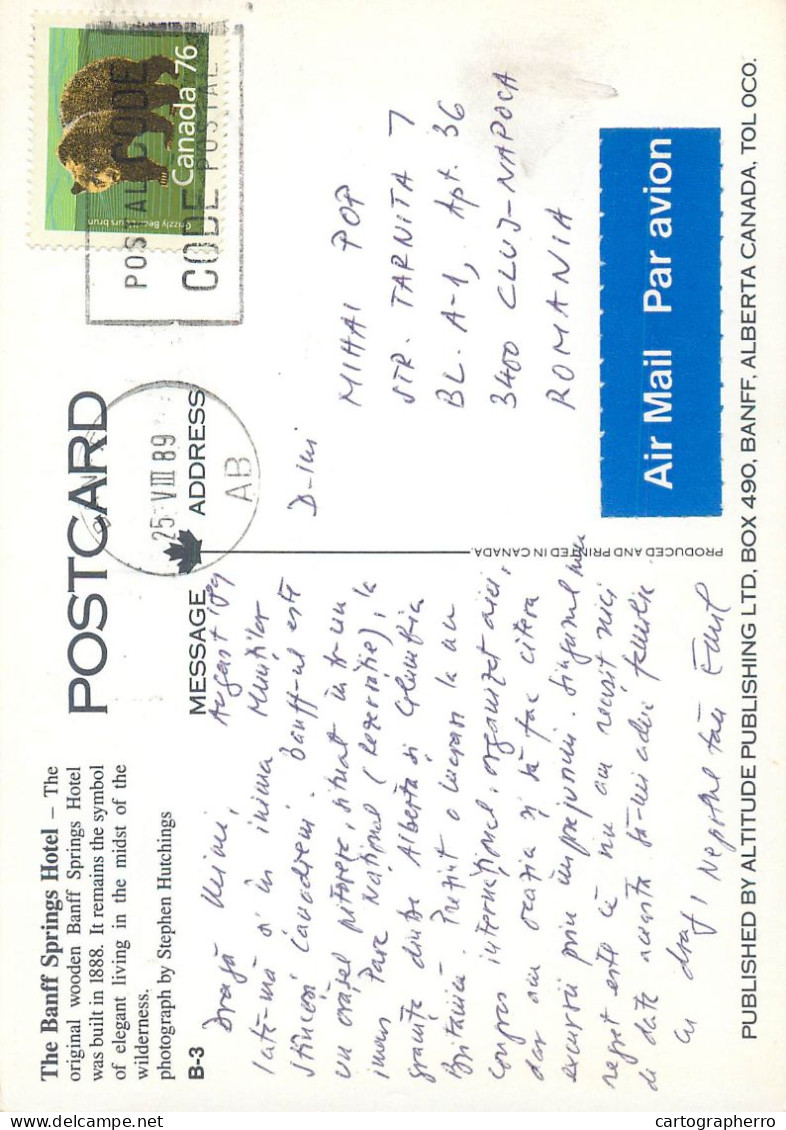 The Banff Springs Hotel – The
original wooden Banff Springs Hotel
was built in 1888. It remains the symbol
of elegant living in the midst of the
wilderness.
photograph by Stephen Hutchings
B-3
POSTCARD
MESSAGE
ADDRESS
August 1989
Dragă Mimi,
Iată-mă și în inima Munților
Stâncoși Canadieni. Banff-ul este
un orășel pitoresc, situat într-un
imens Parc Național (rezervație), la
granița dintre Alberta și Columbia
Britanică. Prezint o lucrare la un
congres internațional, organizat aici,
dar am ocazia și să fac câteva
excursii prin împrejurimi. Singurul meu
regret este că nu am reușit nici
de data aceasta să-mi aduc familia.
Cu drag, Nepotul tău Emil
Canada 76
Grizzly Bear, Ours brun
POSTAL CODE
CODE POSTAL
25 VIII 89
AB
D-lui
MIHAI POP
STR. TARNITA 7
BL. A-1, Apt. 36
3400 CLUJ-NAPOCA
ROMANIA
Air Mail Par avion
PRODUCED AND PRINTED IN CANADA.
PUBLISHED BY ALTITUDE PUBLISHING LTD, BOX 490, BANFF, ALBERTA CANADA, TOL OCO.
cartographerro